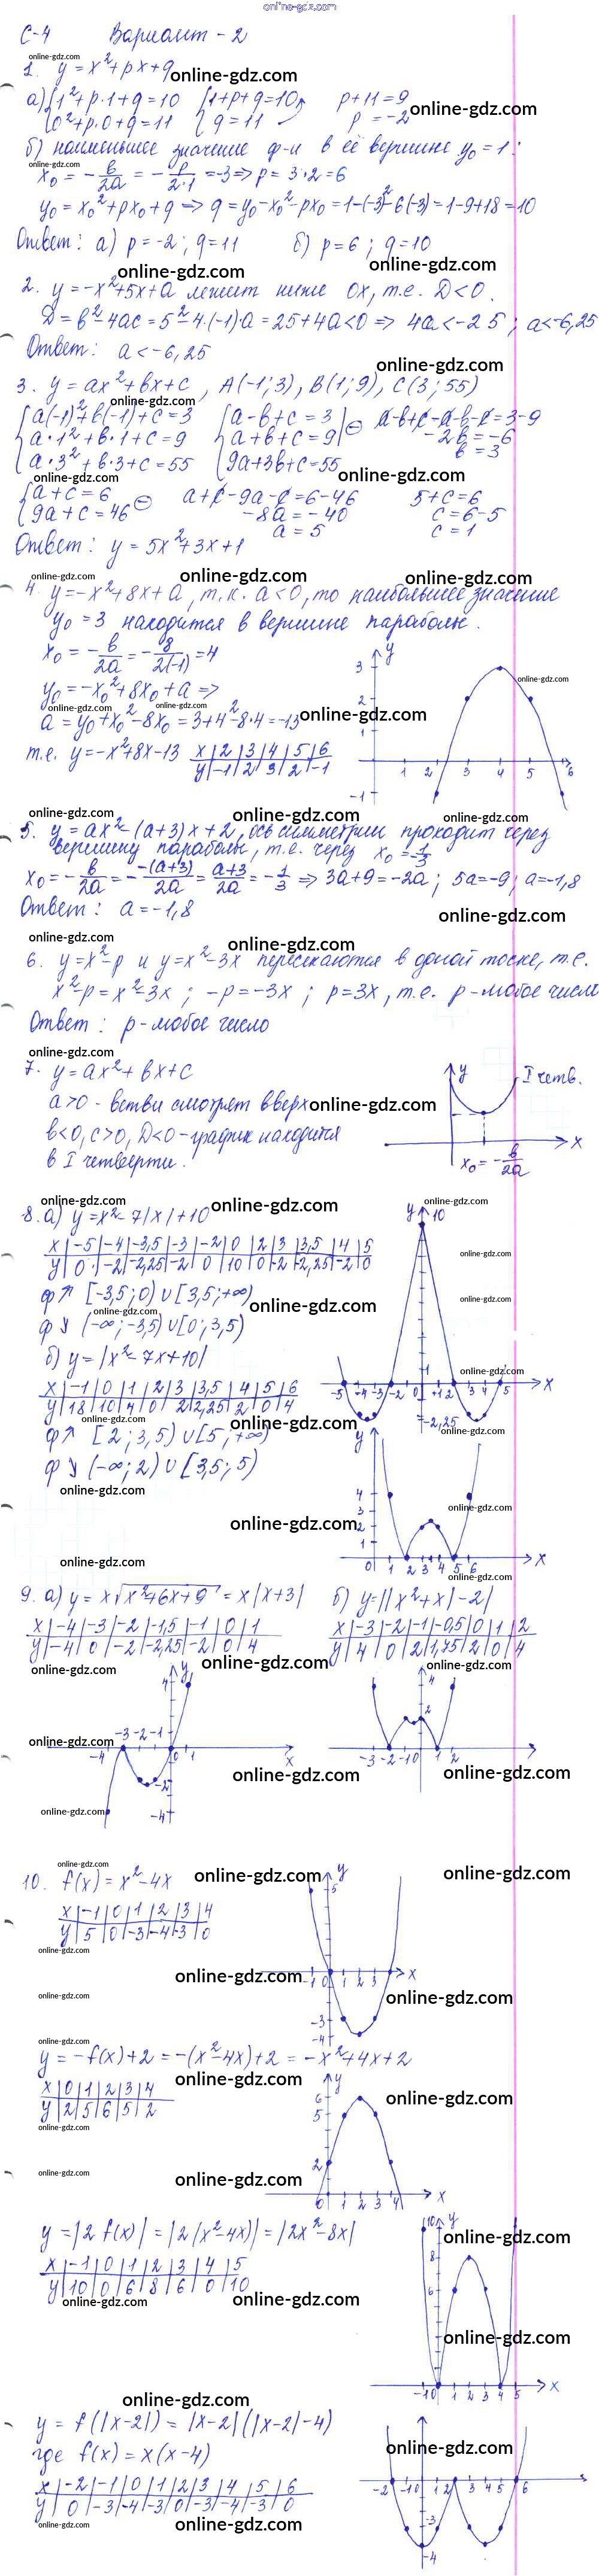 online-gdz.com
С-4 Вариант - 2
online-gdz.com
1. y = x² + px + q
online-gdz.com
а) {1² + p·1 + q = 10 {1 + p + q = 10 p + 11 = 9
online-gdz.com
{0² + p·0 + q = 11 {q = 11 p = -2
б) наименьшее значение ф-и в её вершине y₀ = 1.
online-gdz.com
x₀ = -в/2a = -p/2·1 = -3 ⇒ p = 3·2 = 6
y₀ = x₀² + px₀ + q ⇒ q = y₀ - x₀² - px₀ = 1-(-3)² - 6(-3) = 1-9+18 = 10
Ответ: а) p = -2; q = 11 б) p = 6; q = 10
online-gdz.com online-gdz.com
2. y = -x² + 5x + a лежит ниже Ox, т.е. D < 0.
D = в² - 4ac = 5² - 4·(-1)·a = 25 + 4a < 0 ⇒ 4a < -25; a < -6,25
Ответ: a < -6,25
online-gdz.com
3. y = ax² + bx + c, A(-1; 3), B(1; 9), C(3; 55)
online-gdz.com
{a(-1)² + в(-1) + c = 3 {a - в + c = 3 a-в+c-a-в-c = 3-9
{a·1² + в·1 + c = 9 {a + в + c = 9 ⊖ -2в = -6
{a·3² + в·3 + c = 55 {9a + 3в + c = 55 в = 3
online-gdz.com online-gdz.com
{a + c = 6 ⊖ a + c - 9a - c = 6 - 46 5 + c = 6
{9a + c = 46 -8a = -40 c = 6-5
a = 5 c = 1
Ответ: y = 5x² + 3x + 1
online-gdz.com online-gdz.com online-gdz.com
4. y = -x² + 8x + a, т.к. a < 0, то наибольшее значение
y₀ = 3 находится в вершине параболы.
x₀ = -в/2a = -8/2(-1) = 4
y₀ = -x₀² + 8x₀ + a ⇒
online-gdz.com online-gdz.com online-gdz.com
a = y₀ + x₀² - 8x₀ = 3 + 4² - 8·4 = -13
online-gdz.com
т.е. y = -x² + 8x - 13
x | 2 | 3 | 4 | 5 | 6
y | -1 | 2 | 3 | 2 | -1
y
3
2
1
1 2 3 4 5 6
-1
online-gdz.com online-gdz.com online-gdz.com
5. y = ax² - (a+3)x + 2, ось симметрии проходит через
вершину параболы, т.е. через x₀ = -1/3
x₀ = -в/2a = -(-(a+3))/2a = (a+3)/2a = -1/3 ⇒ 3a + 9 = -2a; 5a = -9; a = -1,8
Ответ: a = -1,8
online-gdz.com
online-gdz.com online-gdz.com
6. y = x² - p и y = x² - 3x пересекаются в одной точке, т.е.
x² - p = x² - 3x; -p = -3x; p = 3x, т.е. p - любое число
Ответ: p - любое число
online-gdz.com
7. y = ax² + вx + c
a > 0 - ветви смотрят вверх
online-gdz.com
в < 0, c > 0, D < 0 - график находится
в I четверти.
y I четв.
x
x₀ = -в/2a
online-gdz.com online-gdz.com online-gdz.com
8. а) y = x² - 7|x| + 10
x | -5 | -4 | -3,5 | -3 | -2 | 0 | 2 | 3 | 3,5 | 4 | 5
y | 0 | -2 | -2,25 | -2 | 0 | 10 | 0 | -2 | -2,25 | -2 | 0
ф ↗ [-3,5; 0) ∪ [3,5; +∞)
online-gdz.com online-gdz.com
ф ↘ (-∞; -3,5) ∪ [0; 3,5)
y 10
online-gdz.com
online-gdz.com
online-gdz.com
1
-5 -4 -3 -2 0 1 2 3 4 5 x
-2,25
б) y = |x² - 7x + 10|
x | -1 | 0 | 1 | 2 | 3 | 3,5 | 4 | 5 | 6
y | 18 | 10 | 4 | 0 | 2 | 2,25 | 2 | 0 | 4
online-gdz.com online-gdz.com online-gdz.com
ф ↗ [2; 3,5) ∪ [5; +∞)
ф ↘ (-∞; 2) ∪ [3,5; 5)
online-gdz.com
y
4
3
2
1
0 1 2 3 4 5 6 x
online-gdz.com online-gdz.com
online-gdz.com
9. а) y = x√(x² + 6x + 9) = x|x+3| б) y = ||x² + x| - 2|
x | -4 | -3 | -2 | -1,5 | -1 | 0 | 1
y | -4 | 0 | -2 | -2,25 | -2 | 0 | 4
x | -3 | -2 | -1 | -0,5 | 0 | 1 | 2
y | 4 | 0 | 2 | 1,75 | 2 | 0 | 4
online-gdz.com online-gdz.com online-gdz.com
y
4
-4 -3 -2 -1 0 1 x
-2
-4
4
2
-3 -2 -1 0 1 2
online-gdz.com online-gdz.com online-gdz.com
online-gdz.com
online-gdz.com online-gdz.com online-gdz.com
10. f(x) = x² - 4x
x | -1 | 0 | 1 | 2 | 3 | 4
y | 5 | 0 | -3 | -4 | -3 | 0
y
5
-1 0 1 2 3 x
-3
-4
online-gdz.com
online-gdz.com
online-gdz.com online-gdz.com
online-gdz.com
y = -f(x) + 2 = -(x² - 4x) + 2 = -x² + 4x + 2
online-gdz.com
x | 0 | 1 | 2 | 3 | 4
y | 2 | 5 | 6 | 5 | 2
online-gdz.com online-gdz.com
y
6
5
2
0 1 2 3 4 x
online-gdz.com online-gdz.com
y = |2 f(x)| = |2(x² - 4x)| = |2x² - 8x|
online-gdz.com
x | -1 | 0 | 1 | 2 | 3 | 4 | 5
y | 10 | 0 | 6 | 8 | 6 | 0 | 10
online-gdz.com online-gdz.com
online-gdz.com
10 y
8
6
-1 0 1 2 3 4 5 x
online-gdz.com
y = f(|x-2|) = |x-2|(|x-2|-4)
online-gdz.com
где f(x) = x(x-4)
x | -2 | -1 | 0 | 1 | 2 | 3 | 4 | 5 | 6
y | 0 | -3 | -4 | -3 | 0 | -3 | -4 | -3 | 0
online-gdz.com online-gdz.com
-2 -1 0 1 2 3 4 5 6
-3
-4